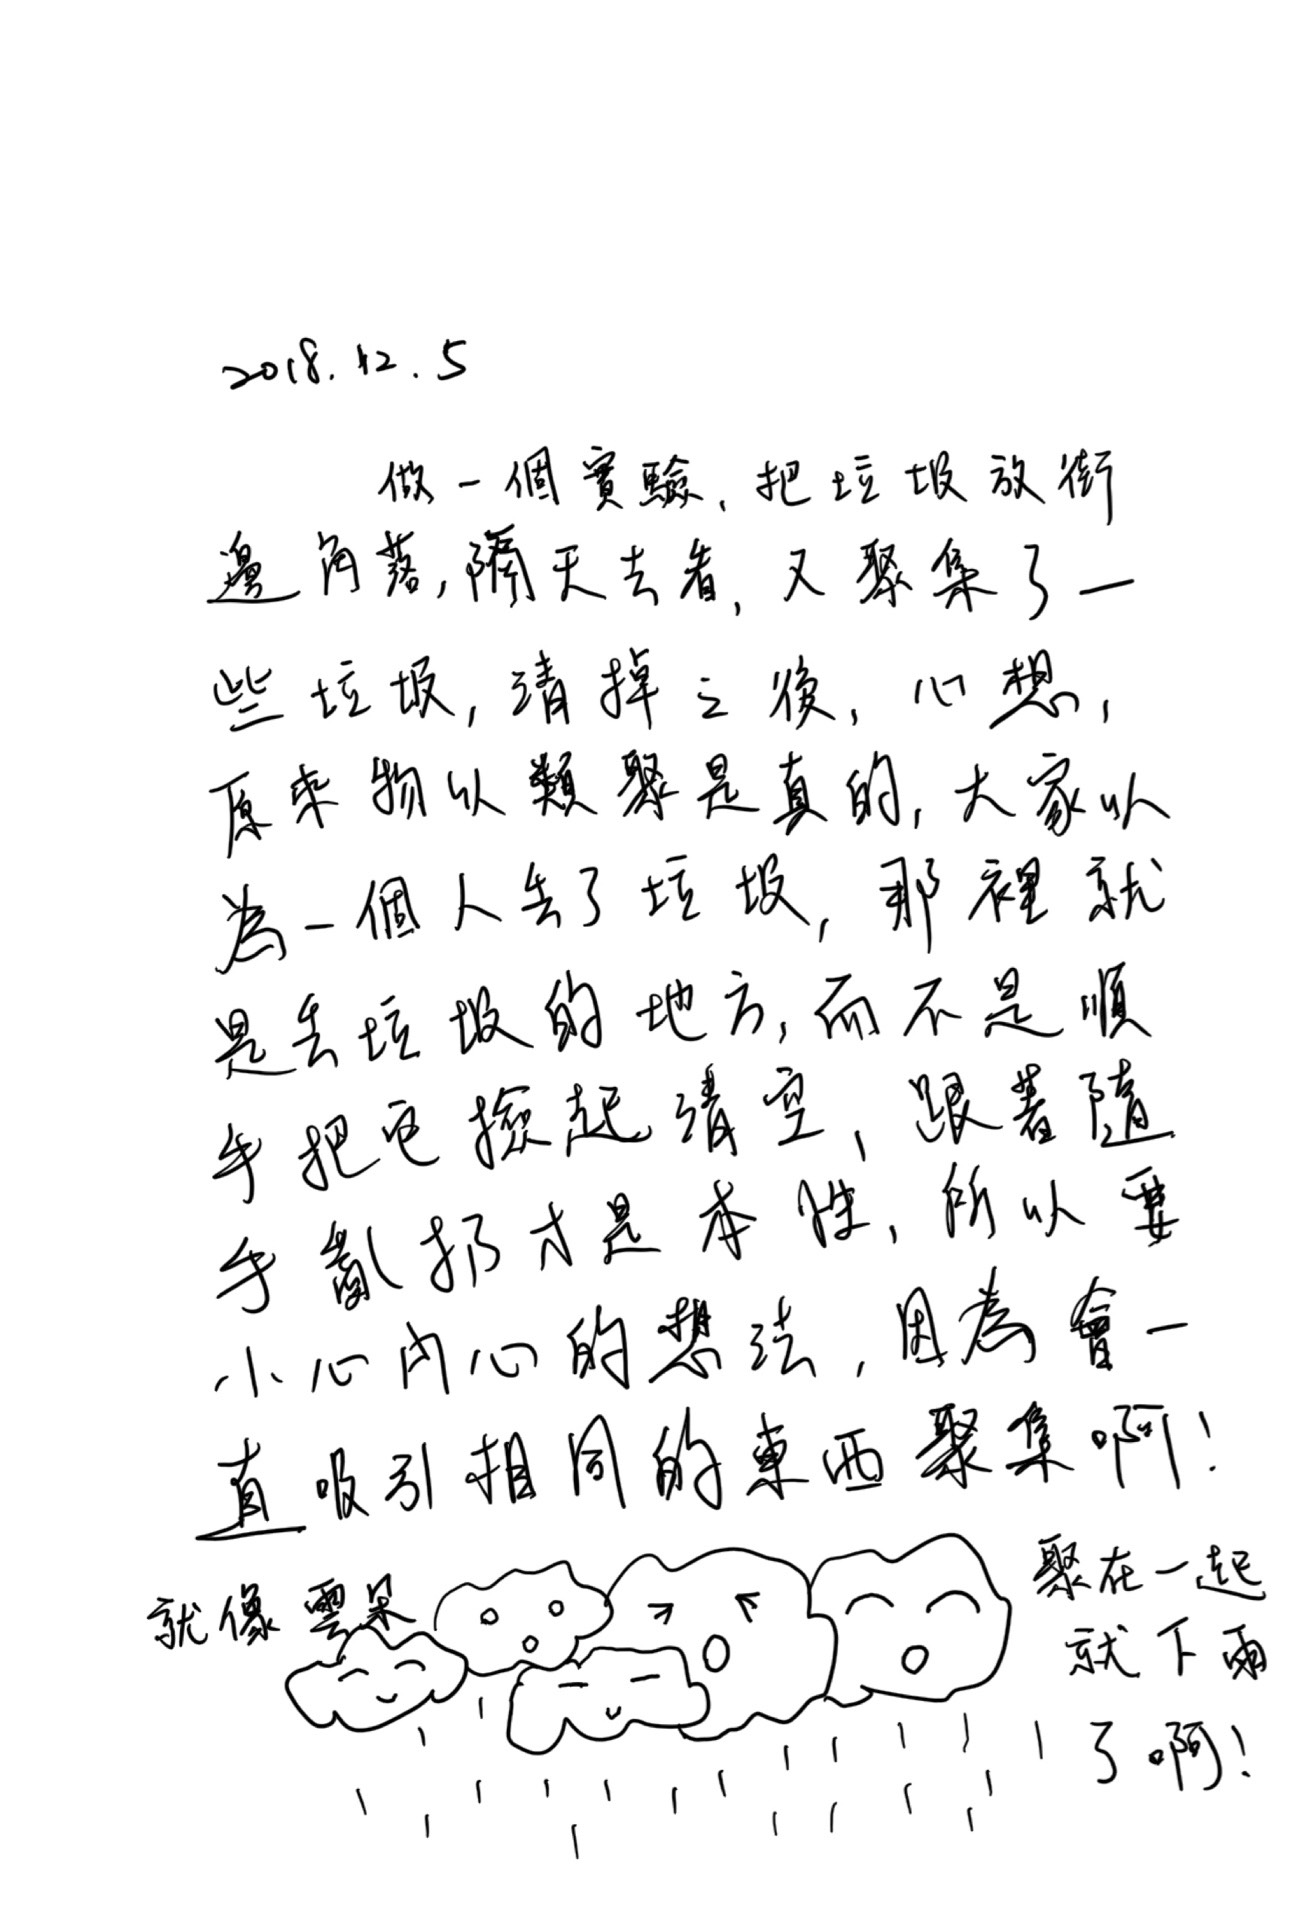 2018.12.5
做一個實驗,把垃圾放街
邊角落,隔天去看,又聚集了一
些垃圾,清掉之後,心想,
原來物以類聚是真的,大家以
為一個人丟了垃圾,那裡就
是丟垃圾的地方,而不是順
手把它撿起清空,跟著隨
手亂扔才是本性,所以要
小心內心的想法,因為會一
直吸引相同的東西聚集啊!
就像雲朵
聚在一起
就下雨
了啊!